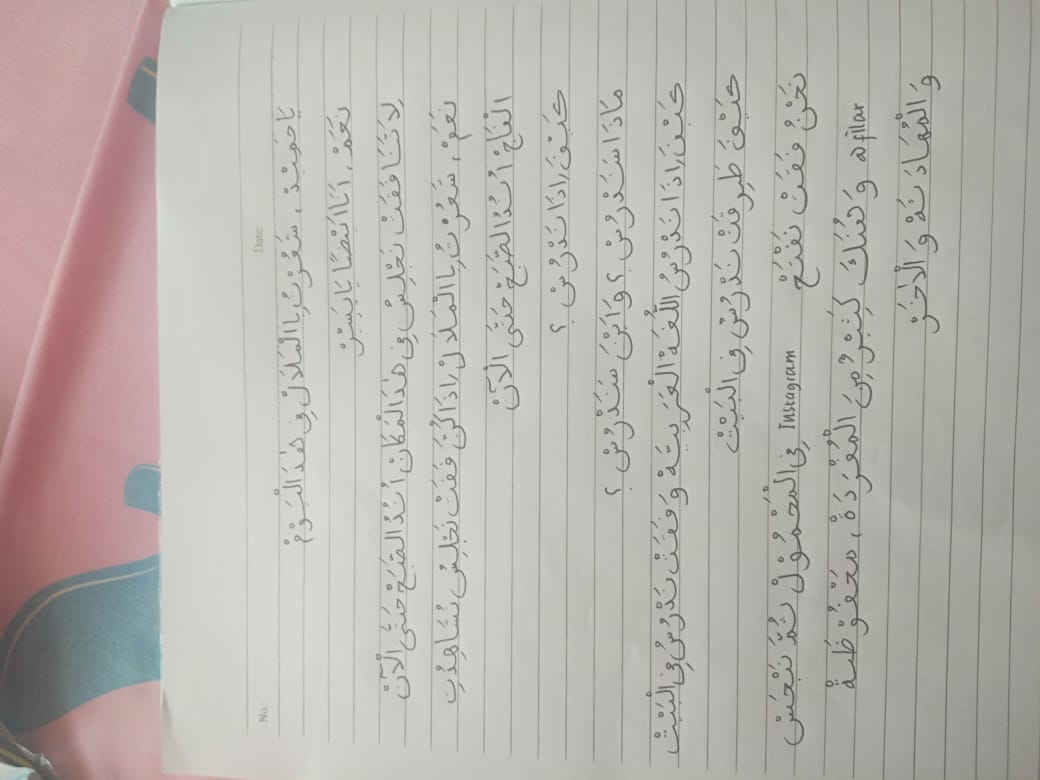 No.: Date:
يَا حَمِيْدْ ، شَعُرْتُ بِاالْمَلَالْ فِي هٰذَ الْيَوْمْ
نَعَمْ ، اَنَا اَيْضًا يَا يَسِرْ
لِاَنَّنَا فَقَتْ نَجْلِسْ فِى هٰذَ الْمَكَانْ اُنْدُ الصَّبَحْ حَتَّى الْآنْ
نَعَمْ ، شَعُرْتُ بِاالْمَلَالْ اِذَا كُنَّ فَقَتْ نَجْلِسُ نُشَاهِدُنِ
الْفَاجْ اُنْدُ الصَّبَحْ حَتَّى الْآنْ
كَيْفَ اِذَا نَدْرُسْ ؟
مَاذَا سَنَدْرُسْ ؟ وَ اَيْنَ سَنَدْرُسْ ؟
كَيْفَ اِذَا نَدْرُسُ اللُّغَةْ الْعَرَبِيَّةْ وَ فَقَتْ نَدْرُسُ فِى الْبَيْتْ
كَيْفَ طَرِقَتْ نَدْرُسْ فِى الْبَيْتْ
نَحْنُ فَقَتْ نَفْتَحْ Instagram فِى الْمَحْمُوْلْ ثُمَّ نَبْحَسْ
@filar وَ هُنَكَ كَثِيْرُ مِنَ الْمُفْرَدَةْ ، مَحْفُوْظَةْ
وَ الْمُهَادَثَةْ وَ الْاَخَرْ